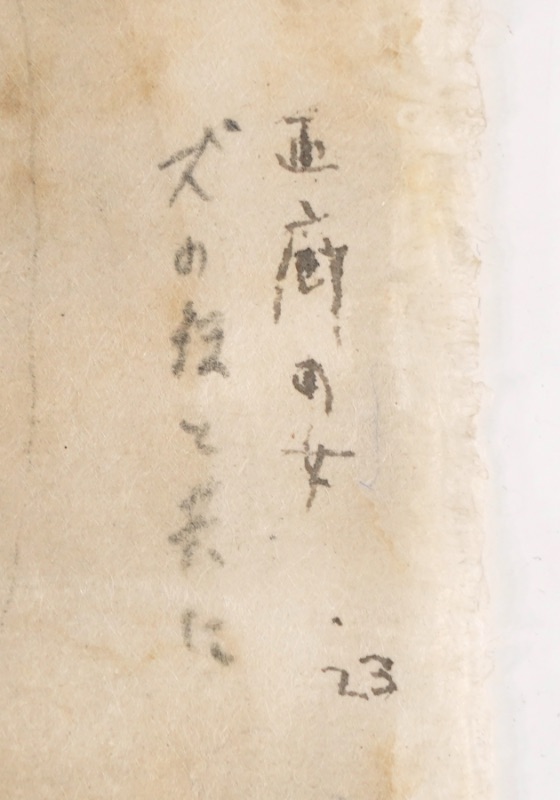 画廊の女
犬の と共に
23